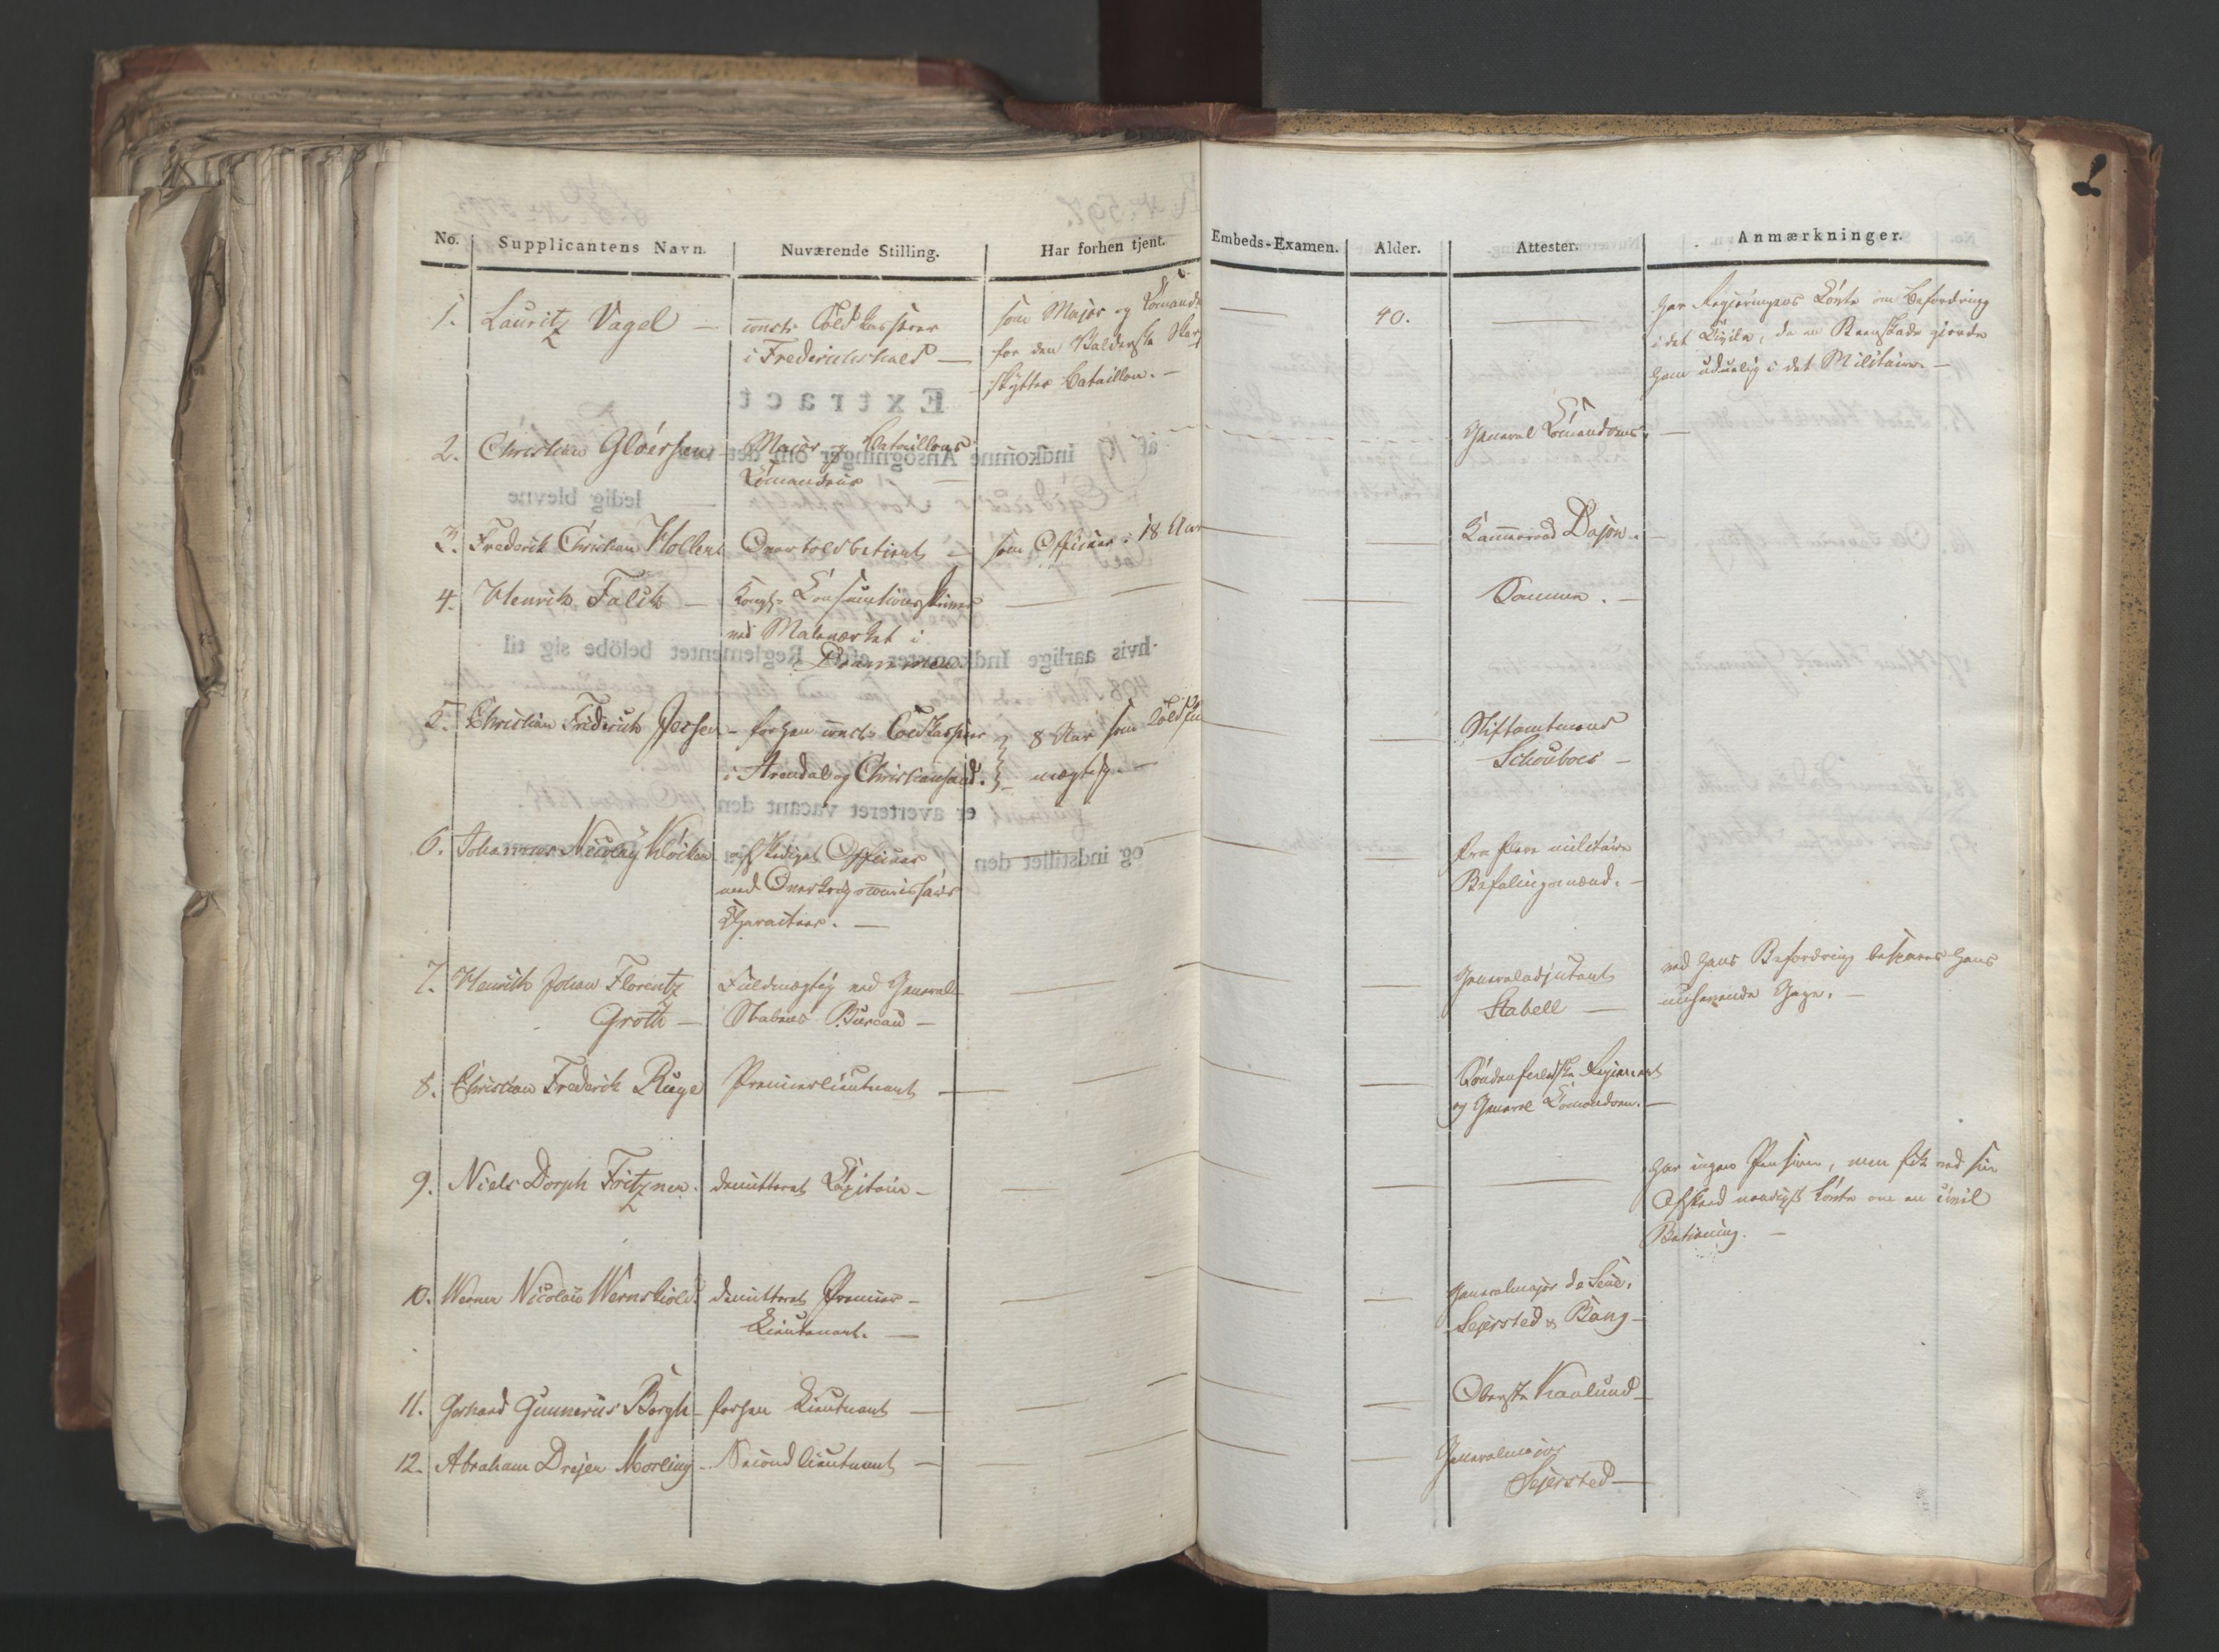 No. Supplicantens Navn. Nuværende Stilling. Har forhen tjent. Embeds-Examen. Alder. Attester. Anmærkninger.
1. Lauritz Vagel — const: Toldkasserer som Major og Commandr — 40. — Har Regjeringens Løvte om Befordring
i Frederikshald — for den Valderske Skarp i det Civile, da en Beenskade gjorde
skytter Bataillon. — ham uduelig i det Militaire. —
2. Christian Gløersen Major og Bataillons General Commandoens. —
Commandeur —
3. Frederik Christian Holleu Overtoldbetient — som Officier i 18 Aar — Kammerraad Dajon. —
4. Henrik Falck — Kongl: Consumtions — — Sammen. —
ved i
Drammen
5. Christian Friderich Jessen — forhen const: Toldkasserer 8 Aar som Toldfuld — Stiftamtmand
i Arendal og Christiansand. mægtig. — Schouboes —
6. Johannes Nicolay Klöcker afskediget Officier — fra flere militaire
med Overkrigscommissairs Befalingsmænd. —
Character. —
7. Henrich Johan Florentz Fuldmægtig ved General — — Generaladjutant ved hans Befordring bespares hans
Groth — Stabens Bureau — Stabell — nuhavende Gage. —
8. Christian Frederik Ruge Premierlieutnant — — Søndenfieldske Regiment
og General Commandoen. —
9. Niels Dorph Fritzner. demitteret Capitain — — — — Har ingen Pension, men fik ved sin
Afskeed naadigst Løvte om en civil
Betiening. —
10. Werner Nicolai Wernskiold. demitteret Premier — — — Generalmajor de Seue,
Lieutenant. — Sejersted & Bang —
11. Gerhard Gunnerus Bergh — forhen Lieutnant — — — Oberste Haxlund —
12. Abraham Drejer Morling — Secondlieutnant — — — Generalmajor
Sejersted —
Extract
af indkomne Ansøgninger om det ved
ledig blevne
hvis aarlige Indkomster efter Reglementet beløbe sig til
er averteret vacant den
og indstillet den